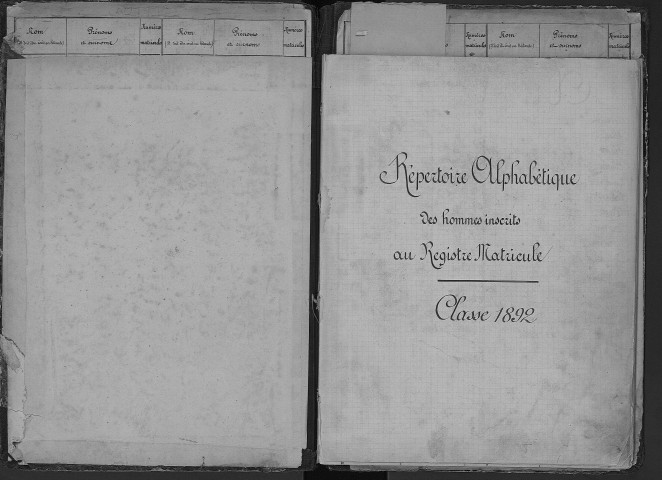 Nom Prénoms Numéros Nom Prénoms Numéros
et surnoms matricule et surnoms matricule
Numéros Nom Prénoms Numéros
matricule et surnoms matricule
Répertoire Alphabétique
des hommes inscrits
au Registre Matricule
Classe 1892